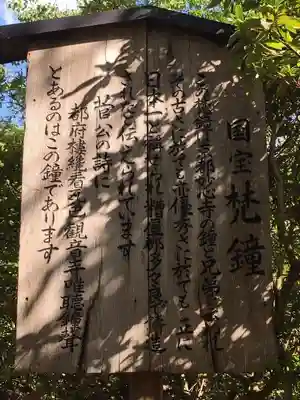 国宝 梵鐘
この梵鐘は京都妙心寺の鐘と兄弟と言われ
その古さに於ても亦優秀さに於ても正に
日本一と称せられ糟屋郡多々良で鋳造
されたと伝えられています
菅公の詩に
都府楼纔看瓦色観音寺唯聴鐘声
とあるのはこの鐘であります